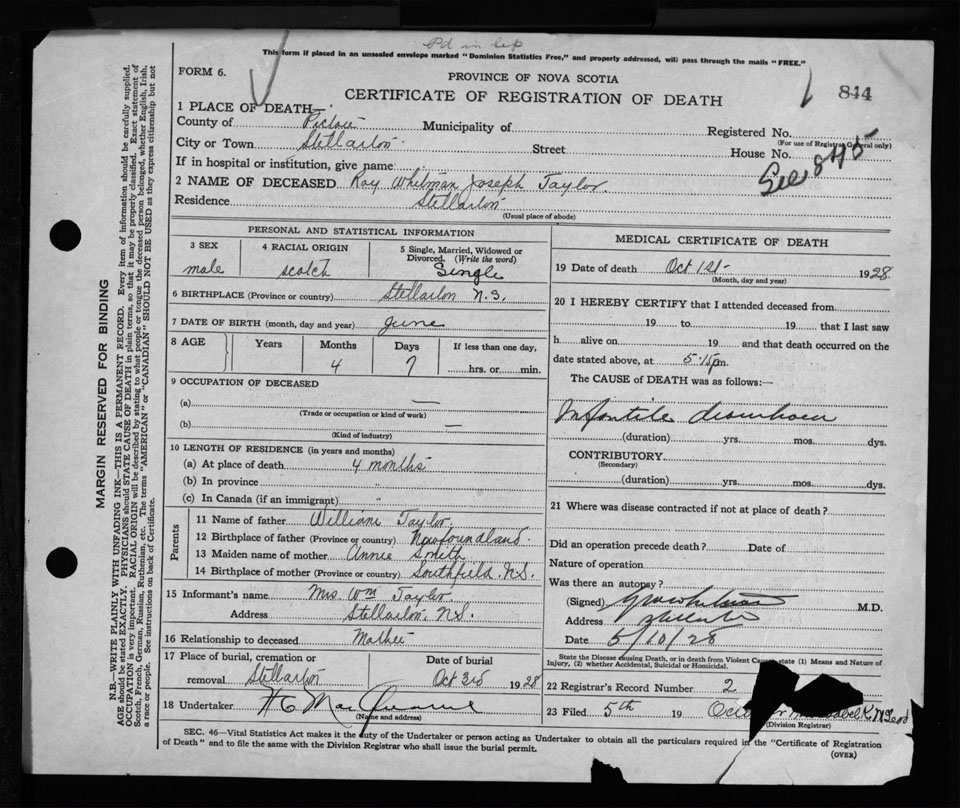 Pd in
This form if placed in an unsealed envelope marked "Dominion Statistics Free," and properly addressed, will pass through the mails "FREE."
FORM 6.
PROVINCE OF NOVA SCOTIA
CERTIFICATE OF REGISTRATION OF DEATH
844
1 PLACE OF DEATH—
County of Pictou Municipality of Registered No.
(For use of Registrar General only)
City or Town Stellarton Street House No.
See 845
If in hospital or institution, give name
2 NAME OF DECEASED Roy Whitman Joseph Taylor
Residence Stellarton
(Usual place of abode)
MARGIN RESERVED FOR BINDING
N.B.—WRITE PLAINLY WITH UNFADING INK—THIS IS A PERMANENT RECORD. Every item of information should be carefully supplied.
AGE should be stated EXACTLY. PHYSICIANS should STATE CAUSE OF DEATH in plain terms, so that it may be properly classified. Exact statement of
OCCUPATION is very important. RACIAL ORIGIN will be described by stating to what people or tongue the deceased person belonged, whether English, Irish,
Scotch, French, German, Russian, Ruthenian, etc. The terms "AMERICAN" or "CANADIAN" SHOULD NOT BE USED as they express citizenship but not
a race or people. See instructions on back of Certificate.
PERSONAL AND STATISTICAL INFORMATION
3 SEX 4 RACIAL ORIGIN 5 Single, Married, Widowed or
Divorced. (Write the word)
male scotch Single
6 BIRTHPLACE (Province or country) Stellarton N.S.
7 DATE OF BIRTH (month, day and year) June
8 AGE Years Months Days If less than one day,
4 7 hrs. or min.
9 OCCUPATION OF DECEASED
(a) —
(Trade or occupation or kind of work)
(b) —
(Kind of industry)
10 LENGTH OF RESIDENCE (in years and months)
(a) At place of death 4 months
(b) In province "
(c) In Canada (if an immigrant) "
Parents
11 Name of father William Taylor.
12 Birthplace of father (Province or country) Newfoundland.
13 Maiden name of mother Annie Smith
14 Birthplace of mother (Province or country) Southfield. N.S.
15 Informant's name Mrs. Wm Taylor
Address Stellarton. N.S.
16 Relationship to deceased Mother
17 Place of burial, cremation or Date of burial
removal Stellarton Oct 3rd 1928
18 Undertaker
(Name and address)
MEDICAL CERTIFICATE OF DEATH
19 Date of death Oct 1st 1928
(Month, day and year)
20 I HEREBY CERTIFY that I attended deceased from
19 to 19 that I last saw
h alive on 19 and that death occurred on the
date stated above, at 5.15pm.
The CAUSE of DEATH was as follows:—
Infantile diarrhoea
(duration) yrs. mos. dys.
CONTRIBUTORY
(Secondary)
(duration) yrs. mos. dys.
21 Where was disease contracted if not at place of death?
Did an operation precede death? Date of
Nature of operation
Was there an autopsy?
(Signed) M.D.
Address Stellarton
Date 5/10/28
State the Disease causing Death, or in death from Violent Causes state (1) Means and Nature of
Injury, (2) whether Accidental, Suicidal or Homicidal.
22 Registrar's Record Number 2
23 Filed 5th 19
(Division Registrar)
SEC. 46—Vital Statistics Act makes it the duty of the Undertaker or person acting as Undertaker to obtain all the particulars required in the "Certificate of Registration
of Death" and to file the same with the Division Registrar who shall issue the burial permit.
(OVER)